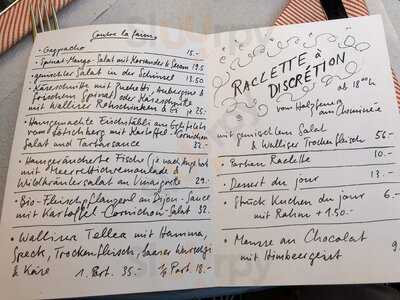 Contre la faim
• Gazpacho 15.-
• Spinat-Mango-Salat mit Koriander & Sesam 19.5
• gemischter Salat in der Schüssel 13.50
• Käseschnitte mit
frischem Spinat oder Käseschnitte
mit Walliser Rohschinken & Ei je 25.-
• Hausgemachte Fischstäbli
vom mit Kartoffel-Cornichon
Salat und Tartarsauce 32.-
• Hausgeräucherte Fische (je nach Angebot)
mit Meerrettichremoulade &
Wildkräutersalat an Vinaigrette 29.-
• Bio-Fleischpflanzerl an Dijon-Sauce
mit Kartoffel-Cornichon-Salat 32.
• Walliser Teller mit Hamma,
Speck, Trockenfleisch,
& Käse 1 Port. 35.- ½ Port. 18.-
RACLETTE à
DISCRÉTION
ab 18 00 h
vom Holzfeuer
am Cheminée
mit gemischtem Salat
& Walliser Trockenfleisch 56-
• Portion Raclette 10.-
• Dessert du jour 13.-
• Stück Kuchen du jour 6.-
mit Rahm + 1.50.-
• Mousse au Chocolat
mit Himbeergeist 9